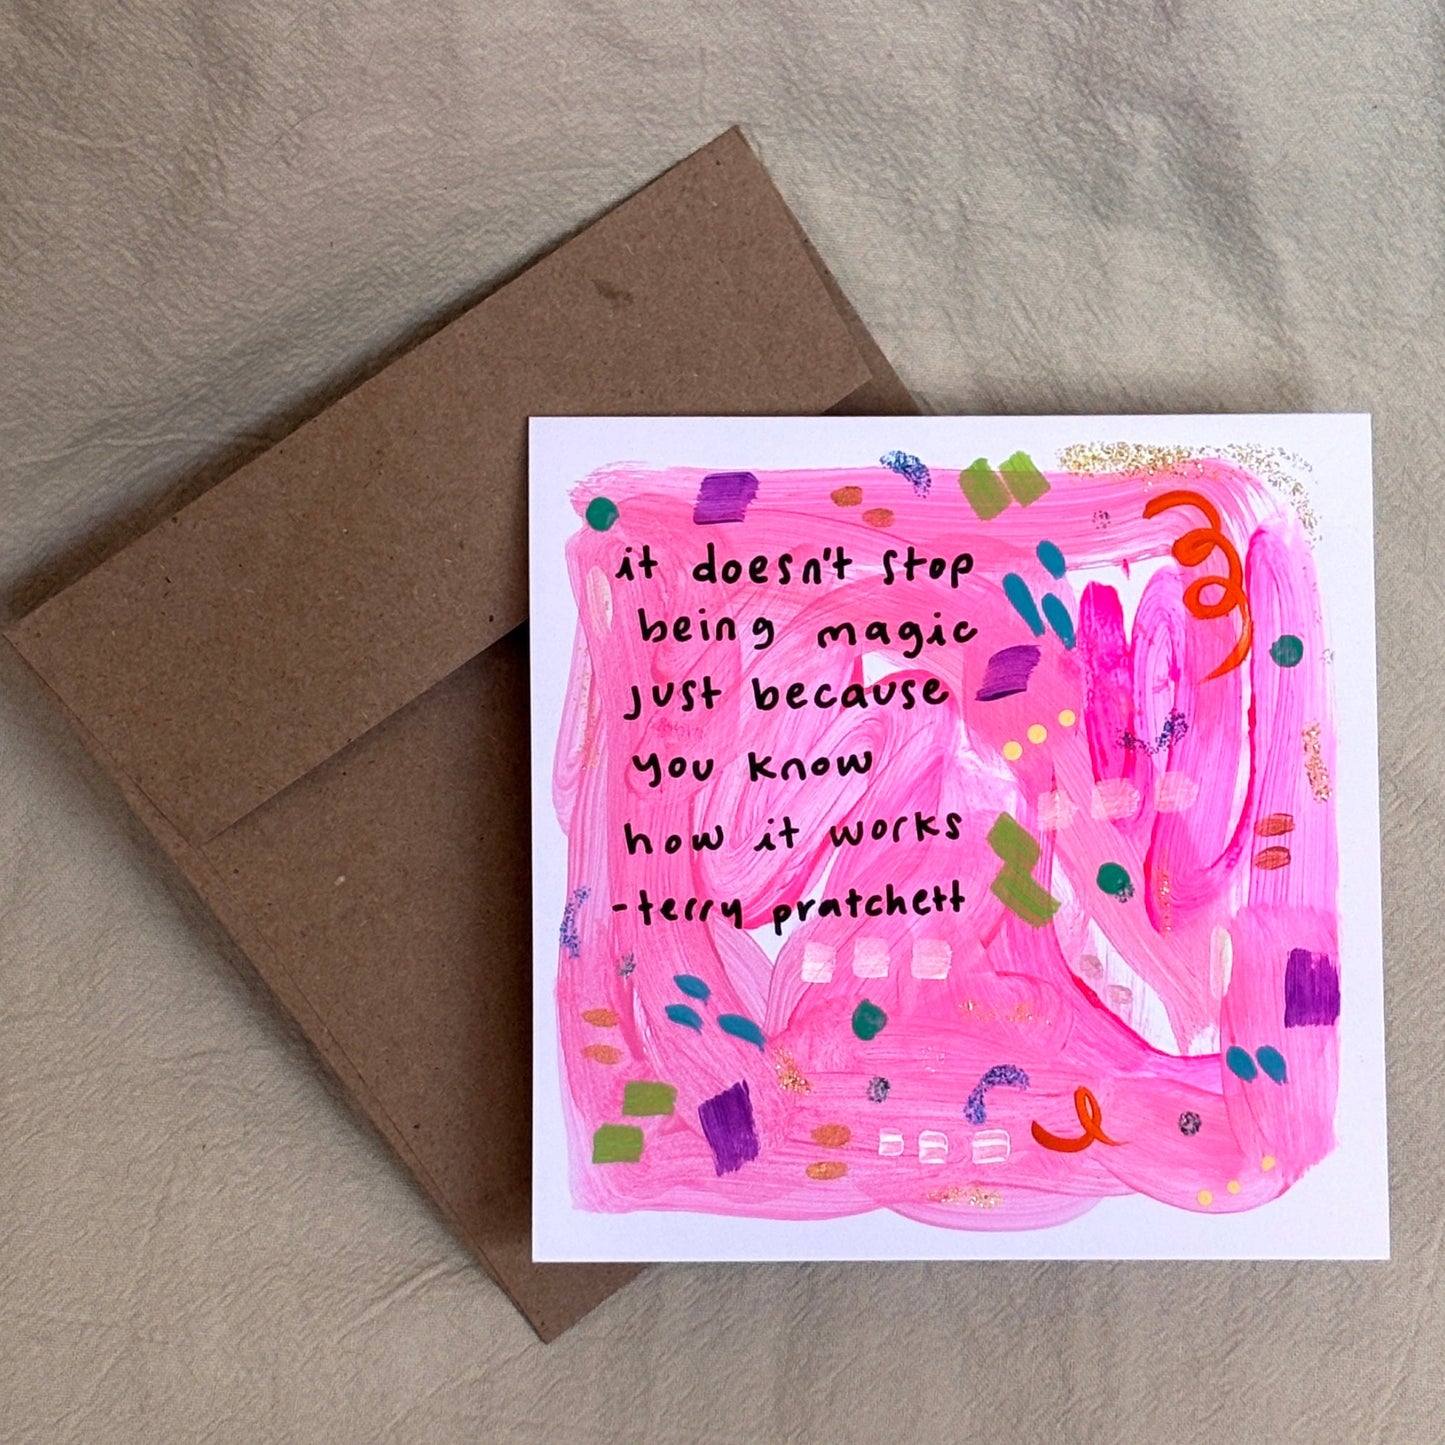 it doesn't stop
being magic
just because
you know
how it works
-terry pratchett